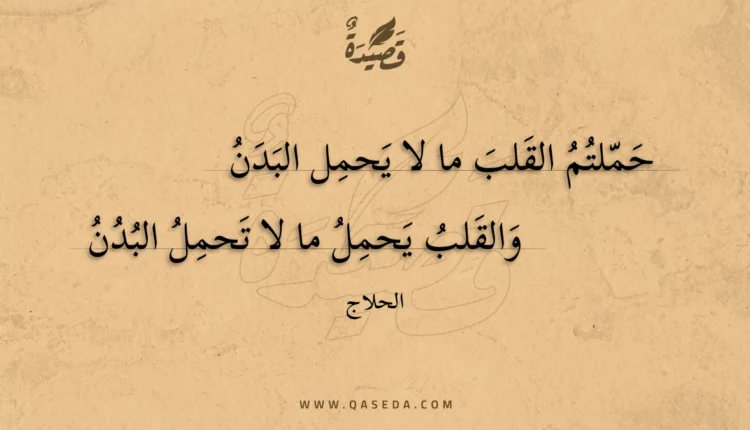 قَصِيْدَةٌ
حَمّلتُمُ القَلبَ ما لا يَحمِل البَدَنُ
وَالقَلبُ يَحمِلُ ما لا تَحمِلُ البُدُنُ
الحلاج
WWW.QASEDA.COM